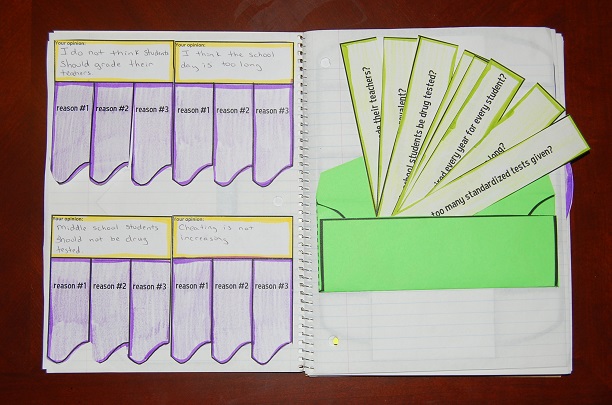 Your opinion:
I do not think students
should grade their
teachers
Your opinion:
I think the school
day is too long
reason #1
reason #2
reason #3
reason #1
reason #2
reason #3
Your opinion:
middle school students
should not be drug
tested
Your opinion:
Cheating is not
increasing
reason #1
reason #2
reason #3
reason #1
reason #2
reason #3
their teachers?
school students be drug tested?
every year for every student?
long?
too many standardized tests given?